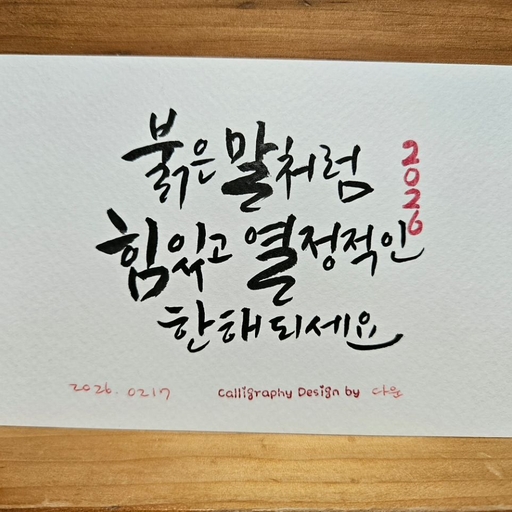 붉은 말처럼
2026
힘있고 열정적인
한해 되세요
2026. 0217
Calligraphy Design by